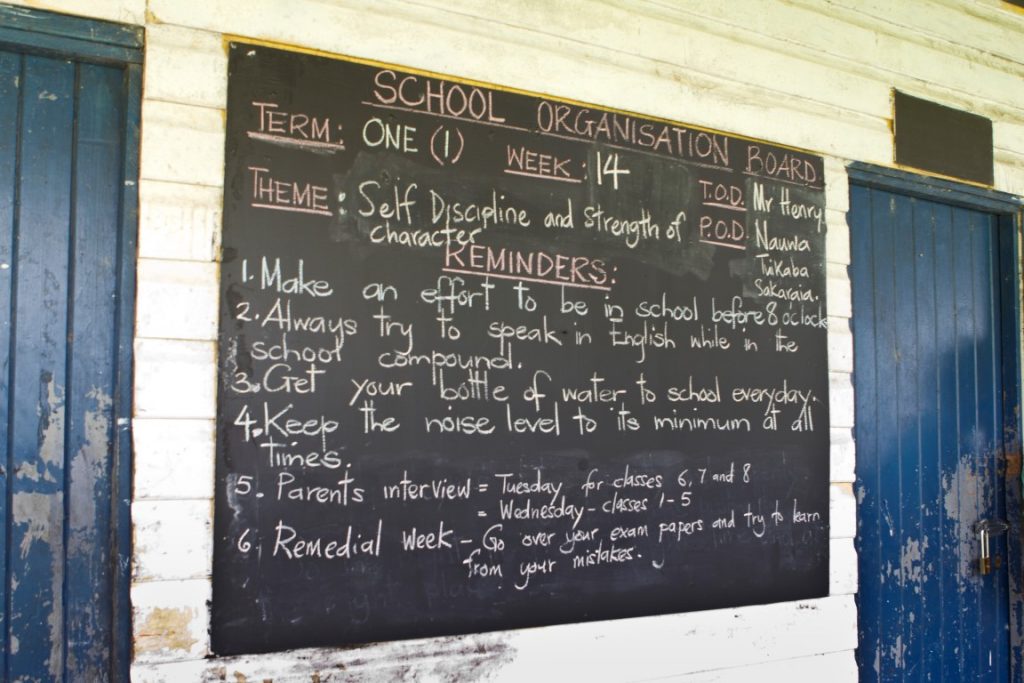 SCHOOL ORGANISATION BOARD
TERM: ONE (1) WEEK: 14
THEME: Self Discipline and Strength of
character
T.O.D. Mr Henry
P.O.D. Nauwa
Tuikaba
Sakaraia.
REMINDERS:
1. Make an effort to be in school before 8 o'clock
2. Always try to speak in English while in the
school compound.
3. Get your bottle of water to school everyday.
4. Keep the noise level to its minimum at all
times.
5. Parents interview = Tuesday for classes 6, 7 and 8
= Wednesday - classes 1 - 5
6. Remedial Week - Go over your exam papers and try to learn
from your mistakes.